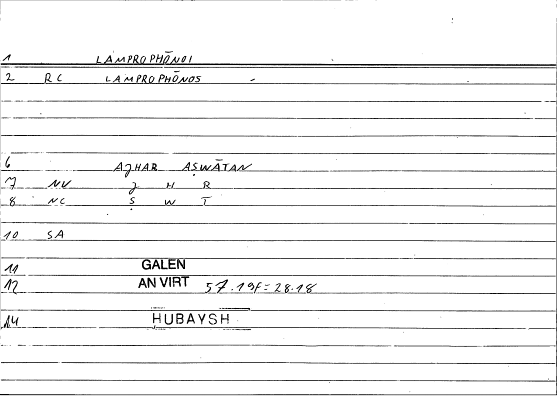 1 LAMPROPHŌNOI
2 RC LAMPROPHŌNOS -
6 AJHAR AṢWĀTAN
7 NV J H R
8 NC Ṣ W T
10 SA
11 GALEN
12 AN VIRT 57.19f=28.18
14 HUBAYSH